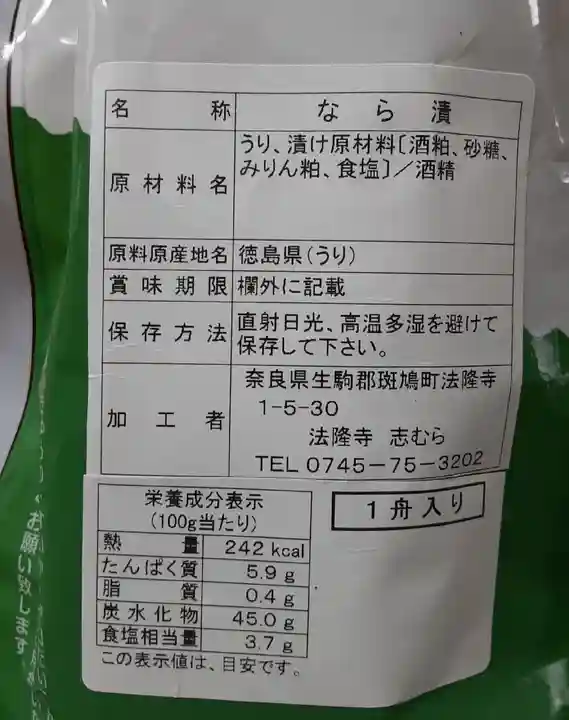 名称 なら漬
原材料名 うり、漬け原材料〔酒粕、砂糖、
みりん粕、食塩〕／酒精
原料原産地名 徳島県(うり)
賞味期限 欄外に記載
保存方法 直射日光、高温多湿を避けて
保存して下さい。
加工者 奈良県生駒郡斑鳩町法隆寺
1-5-30
法隆寺 志むら
TEL 0745-75-3202
栄養成分表示
(100g当たり)
熱量 242 kcal
たんぱく質 5.9 g
脂質 0.4 g
炭水化物 45.0 g
食塩相当量 3.7 g
この表示値は、目安です。
1舟入り
お願い致します